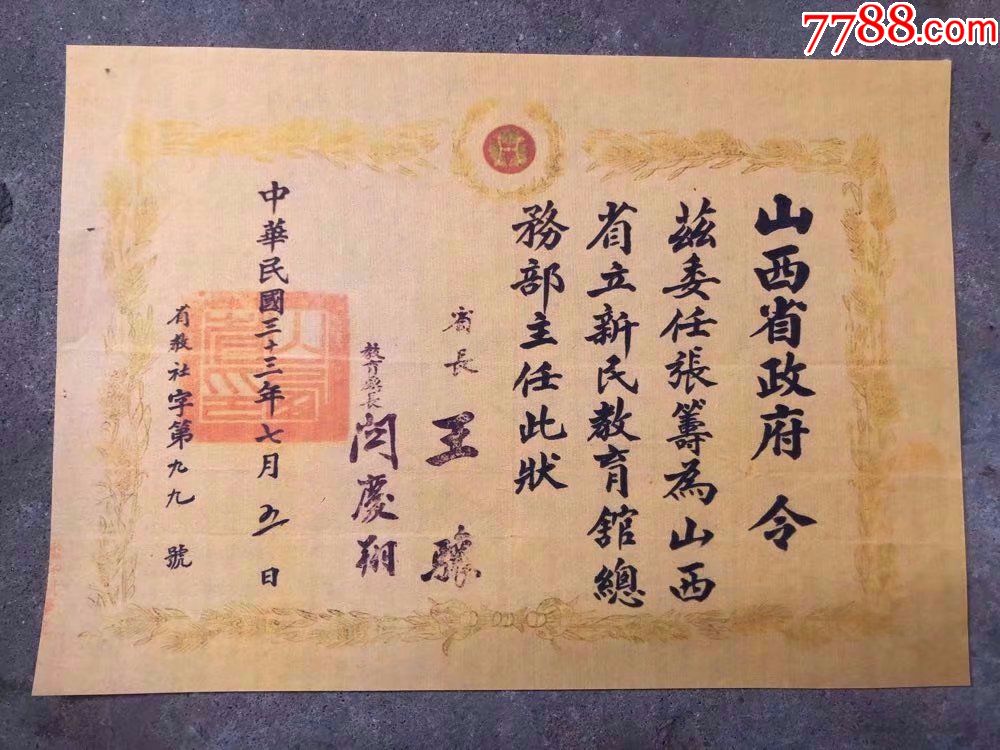 7788.com
山西省政府令
茲委任張籌為山西
省立新民教育館總
務部主任此狀
省長 王驤
教育廳長 閆慶翔
中華民國三十三年七月五日
省教社字第九九號